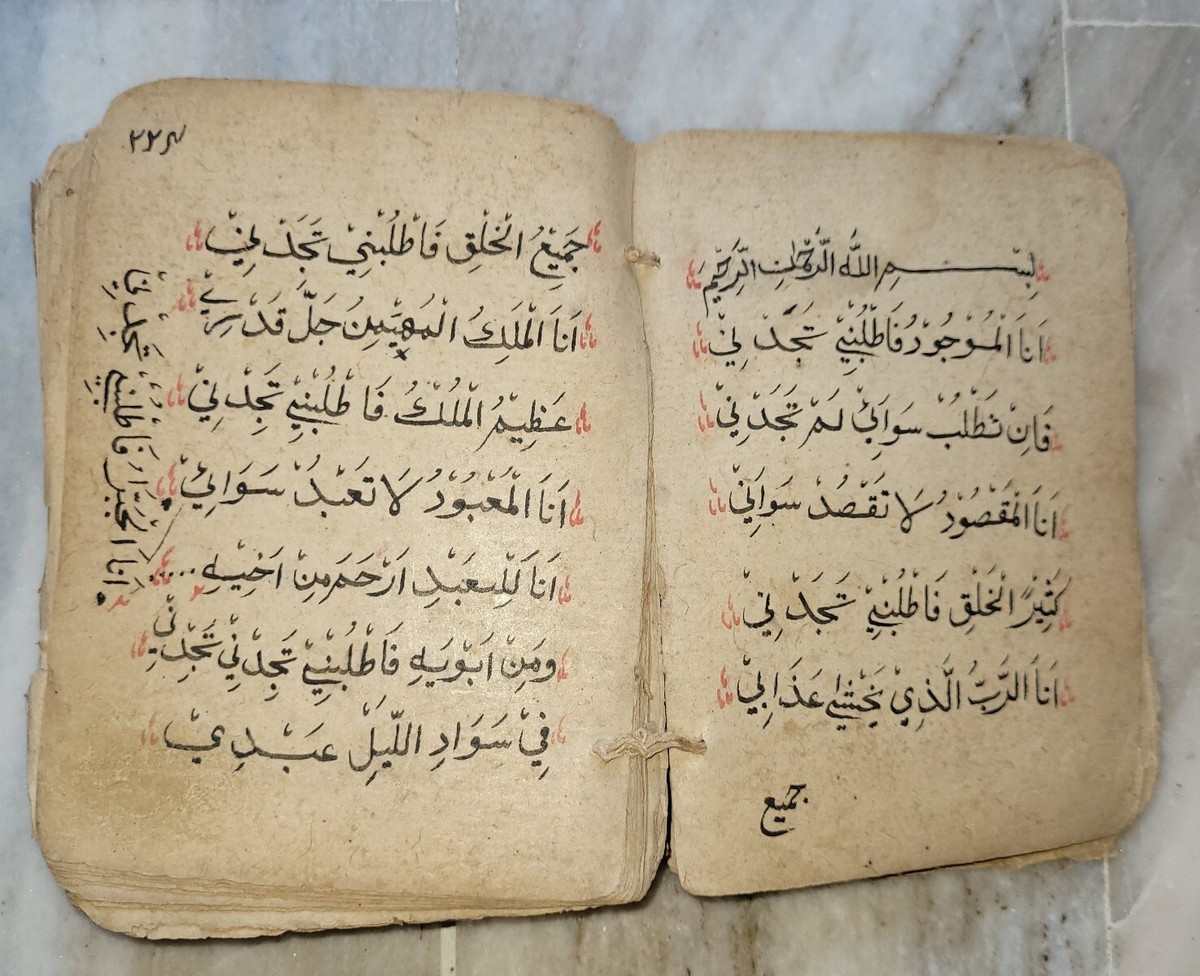 بِسْمِ اللَّهِ الرَّحْمٰنِ الرَّحِيْمِ
اَنَا الْمَوْجُوْدُ فَاطْلُبْنِيْ تَجِدْنِيْ
فَاِنْ تَطْلُبْ سَوَائِيْ لَمْ تَجِدْنِيْ
اَنَا الْمَقْصُوْدُ لَا تَقْصُدْ سَوَائِيْ
كَثِيْرُ الْخَلْقِ فَاطْلُبْنِيْ تَجِدْنِيْ
اَنَا الرَّبُّ الَّذِيْ يَخْشٰى عَذَابِيْ
جميع
٢٢٣
جَمِيْعُ الْخَلْقِ فَاطْلُبْنِيْ تَجِدْنِيْ
اَنَا الْمَلِكُ الْمُهَيْمِنُ جَلَّ قَدْرِيْ
عَظِيْمُ الْمُلْكُ فَاطْلُبْنِيْ تَجِدْنِيْ
اَنَا الْمَعْبُوْدُ لَا تَعْبُدْ سَوَائِيْ
اَنَا لِلْعَبْدِ اَرْحَمُ مِنْ اَخِيْهِ
وَمِنْ اَبَوَيْهِ فَاطْلُبْنِيْ تَجِدْنِيْ تَجِدْنِيْ
فِيْ سَوَادِ اللَّيْلِ عَبْدِيْ
اَنَا الْجَبَّارُ فَاطْلُبْنِيْ تَجِدْنِيْ